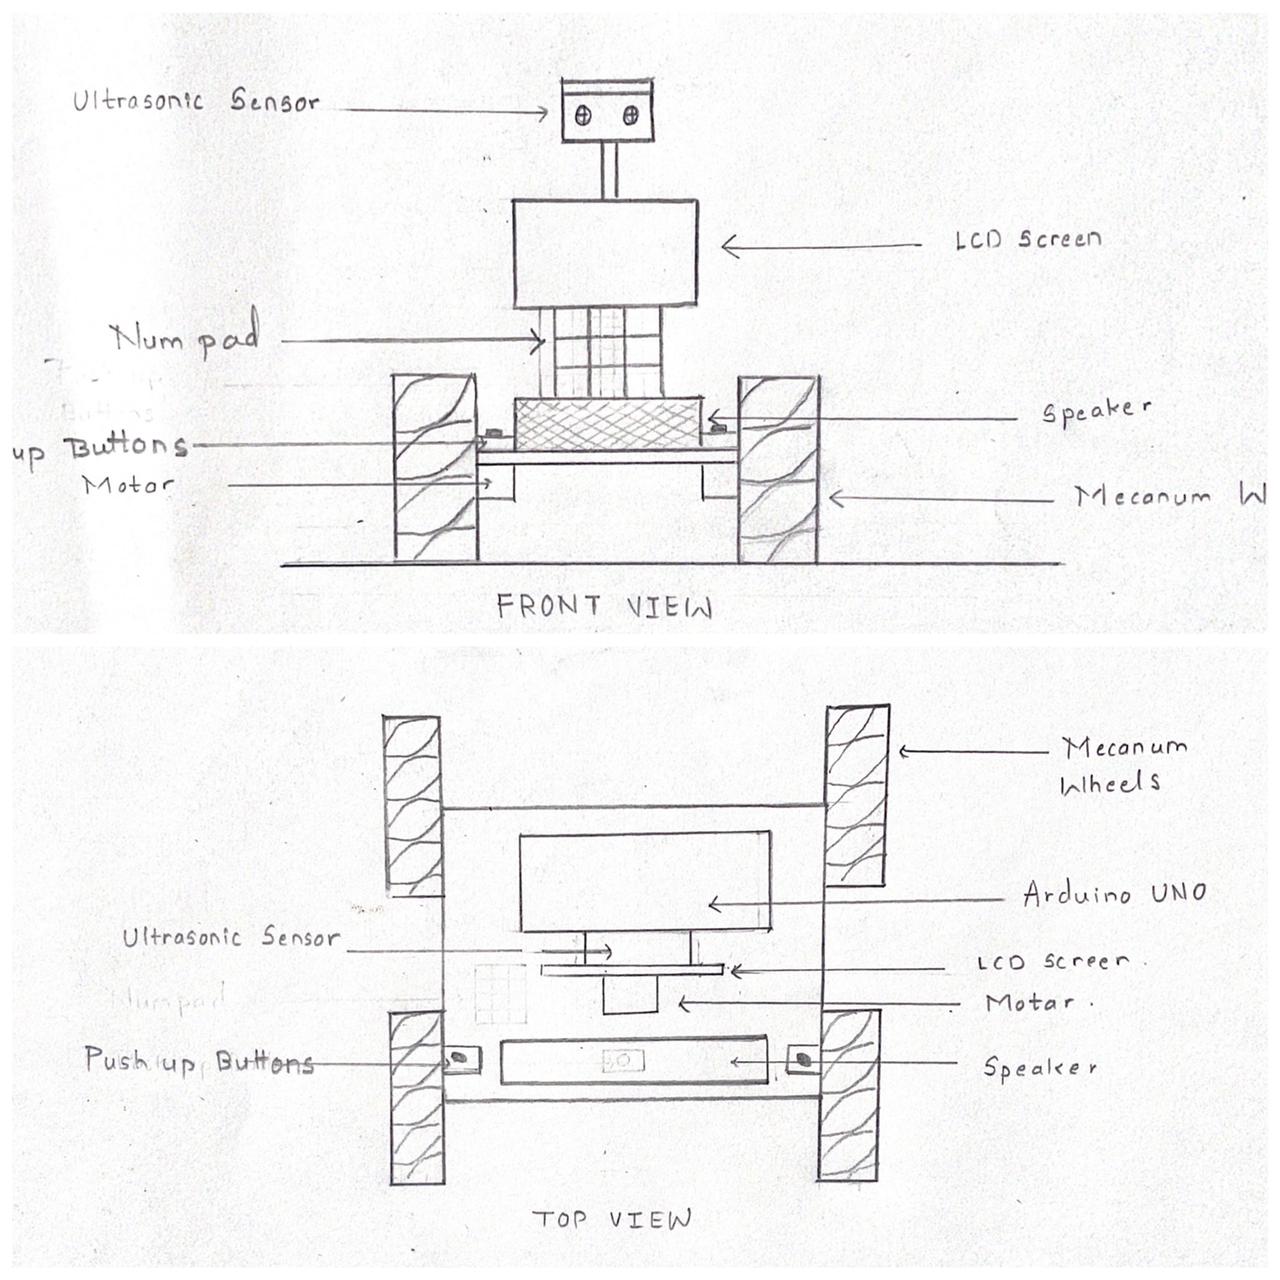 Ultrasonic Sensor
LCD Screen
Num pad
Speaker
up Buttons
Motor
Mecanum W
FRONT VIEW
Mecanum
Wheels
Arduino UNO
Ultrasonic Sensor
LCD Screen.
Numpad
Motar.
Push up Buttons
Speaker
TOP VIEW